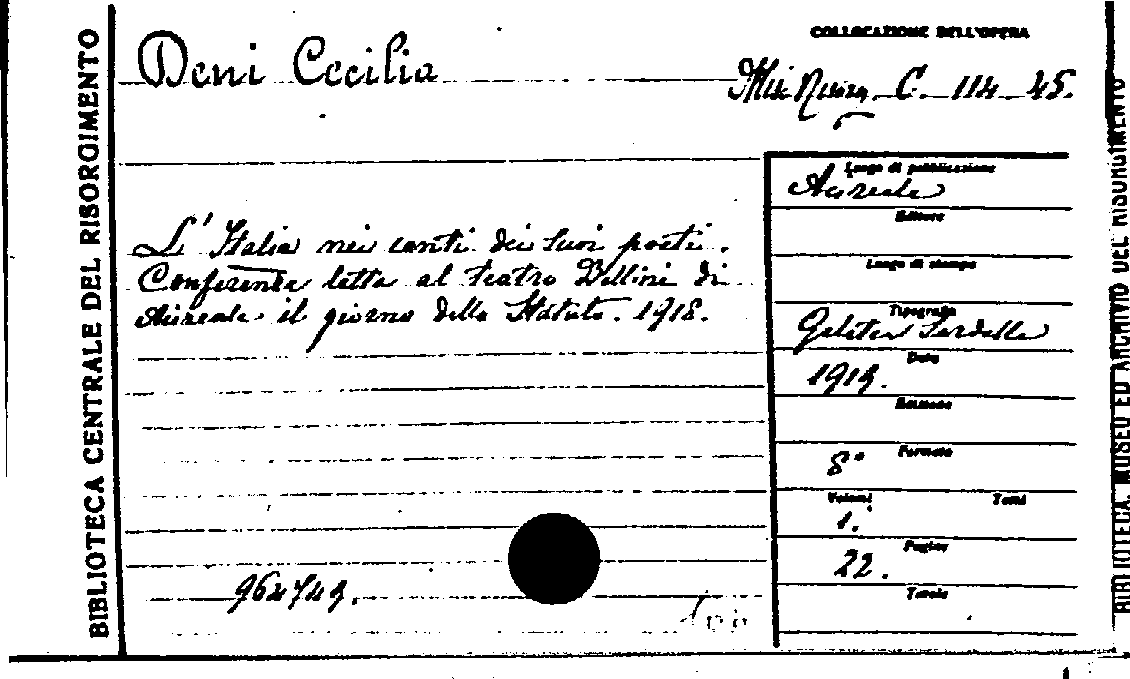 BIBLIOTECA CENTRALE DEL RISORGIMENTO
Deni Cecilia
COLLOCAZIONE DELL'OPERA
C. 114 45.
L'Italia nei canti dei suoi poeti.
Conferenza letta al teatro Bellini di
Acireale il giorno dello Statuto. 1918.
964749.
Luogo di pubblicazione
Acireale
Editore
Luogo di stampa
Tipografia
Galatea Sardella
Data
1919.
Edizione
Formato
8°
Volumi Tomi
1.
Pagine
22.
Tavole
BIBLIOTECA, MUSEO ED ARCHIVIO DEL RISORGIMENTO